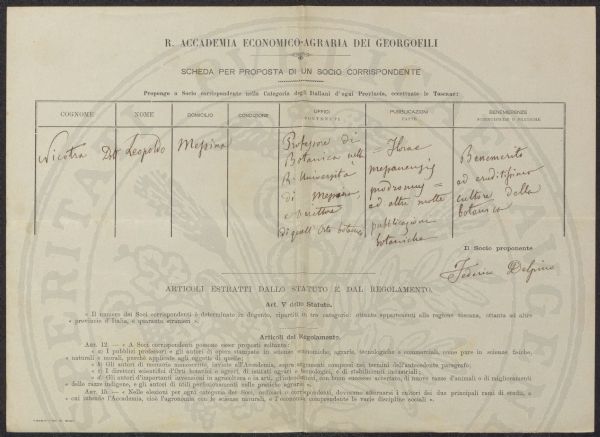 R. ACCADEMIA ECONOMICO-AGRARIA DEI GEORGOFILI
SCHEDA PER PROPOSTA DI UN SOCIO CORRISPONDENTE
Propongo a Socio corrispondente nella Categoria degli Italiani d'ogni Provincia, eccettuate le Toscane:
COGNOME
NOME
DOMICILIO
CONDIZIONE
UFFICI
SOSTENUTI
PUBBLICAZIONI
FATTE
BENEMERENZE
SCIENTIFICHE O PRATICHE
Nicotra
Dott Leopoldo
Messina
Professore di
Botanica nella
R. Università
di Messina,
e direttore
di quell'Orto botanico
= Florae
messanensis
prodromus =
ed altre molte
pubblicazioni
botaniche
Benemerito
ed eruditissimo
cultore della
botanica
Il Socio proponente
Federico Delpino
ARTICOLI ESTRATTI DALLO STATUTO E DAL REGOLAMENTO.
Art. V dello Statuto.
« Il numero dei Soci corrispondenti è determinato in degento, ripartiti in tre categorie: ottanta appartenenti alla regione toscana, ottanta ad altre
« provincie d'Italia, e quaranta stranieri ».
Articoli del Regolamento.
ART. 12. — « A Soci corrispondenti possono esser proposti soltanto:
« a) I pubblici professori e gli autori di opere stampate in scienze economiche, agrarie, tecnologiche e commerciali, come pure in scienze fisiche,
« naturali e morali, perchè applicate agli oggetti di quelle;
« b) Gli autori di memorie manoscritte, inviate all'Accademia, sopra argomenti compresi nei termini dell'antecedente paragrafo;
« c) I direttori scientifici d'Orti botanici e agrari, di istituti agrari e tecnologici, e di stabilimenti sanitari;
« d) Gli autori d'importanti invenzioni in agricoltura e in arti, gl'introduttori, con buon successo accertato, di nuove razze d'animali o di miglioramenti
« delle razze indigene, e gli autori di utili perfezionamenti nelle pratiche agrarie ».
ART. 15. — « Nelle elezioni per ogni categoria dei Soci, ordinari o corrispondenti, dovranno alternarsi i cultori dei due principali rami di studio, a
« cui intende l'Accademia, cioè l'agronomia con le scienze naturali, e l'economia comprendente le varie discipline sociali ».